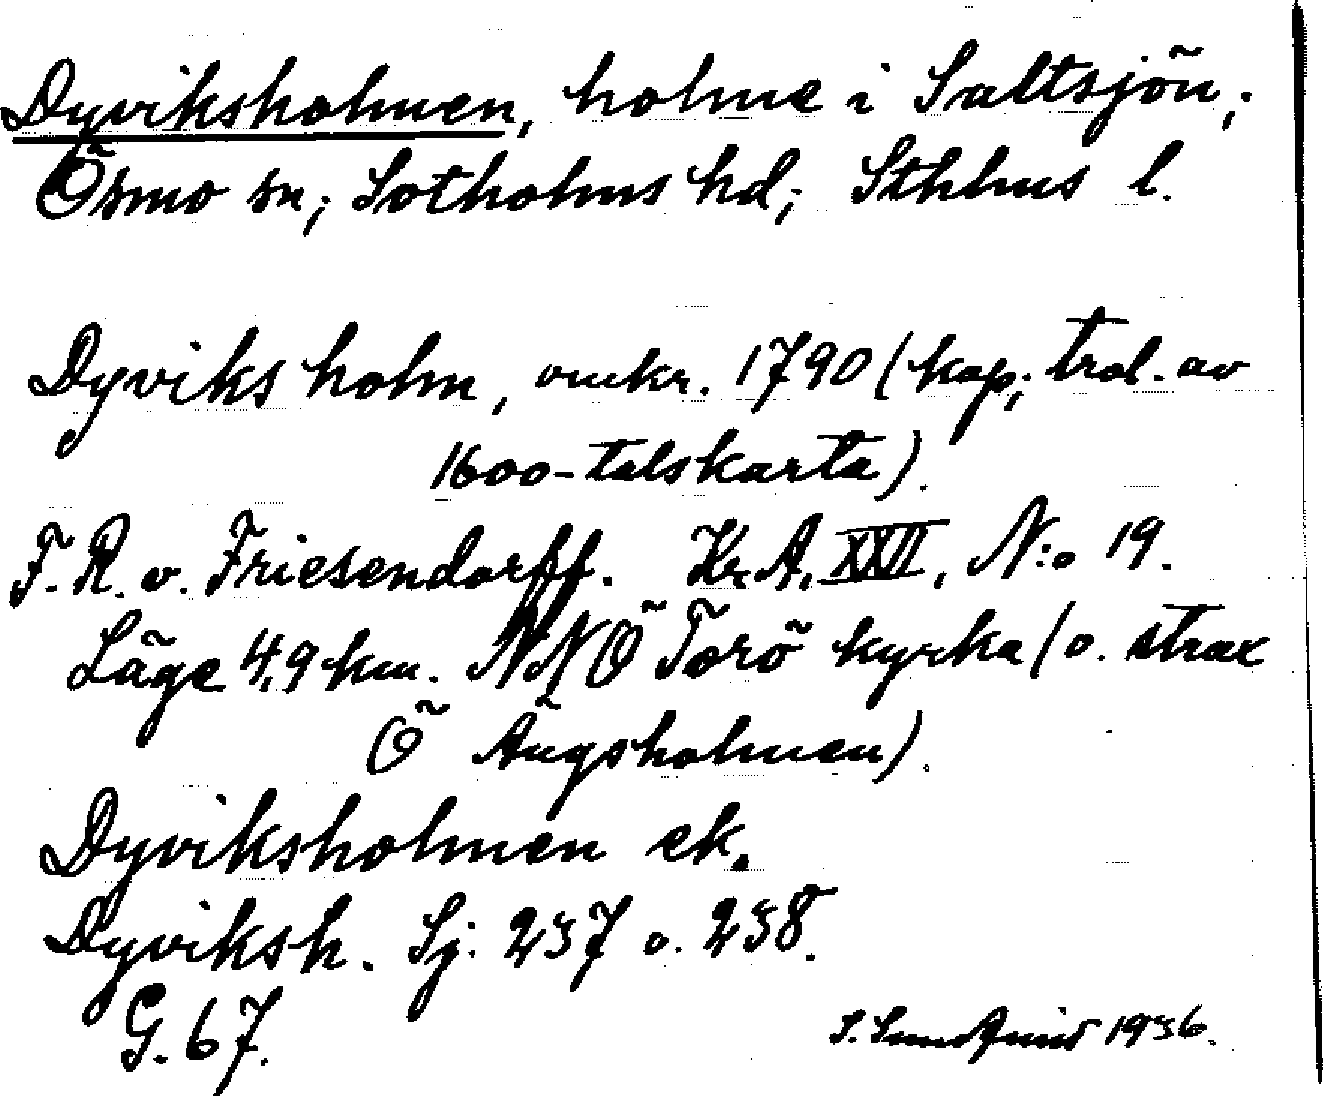 Dyviksholmen, holme i Saltsjön,
Ösmo sn; Sotholms hd; Sthlms l.
Dyviks holm, omkr. 1790 (kop; trol. av
1600-talskarta).
F. R. v. Friesendorff. Kr. A. XXII, N:o 19.
Läge 4,9 km. NNÖ Torö kyrka (o. strax
Ö Ängsholmen).
Dyviksholmen ek.
Dyviksh. Sj: 237 o. 238.
G. 67.
S. Sundqvist 1936.